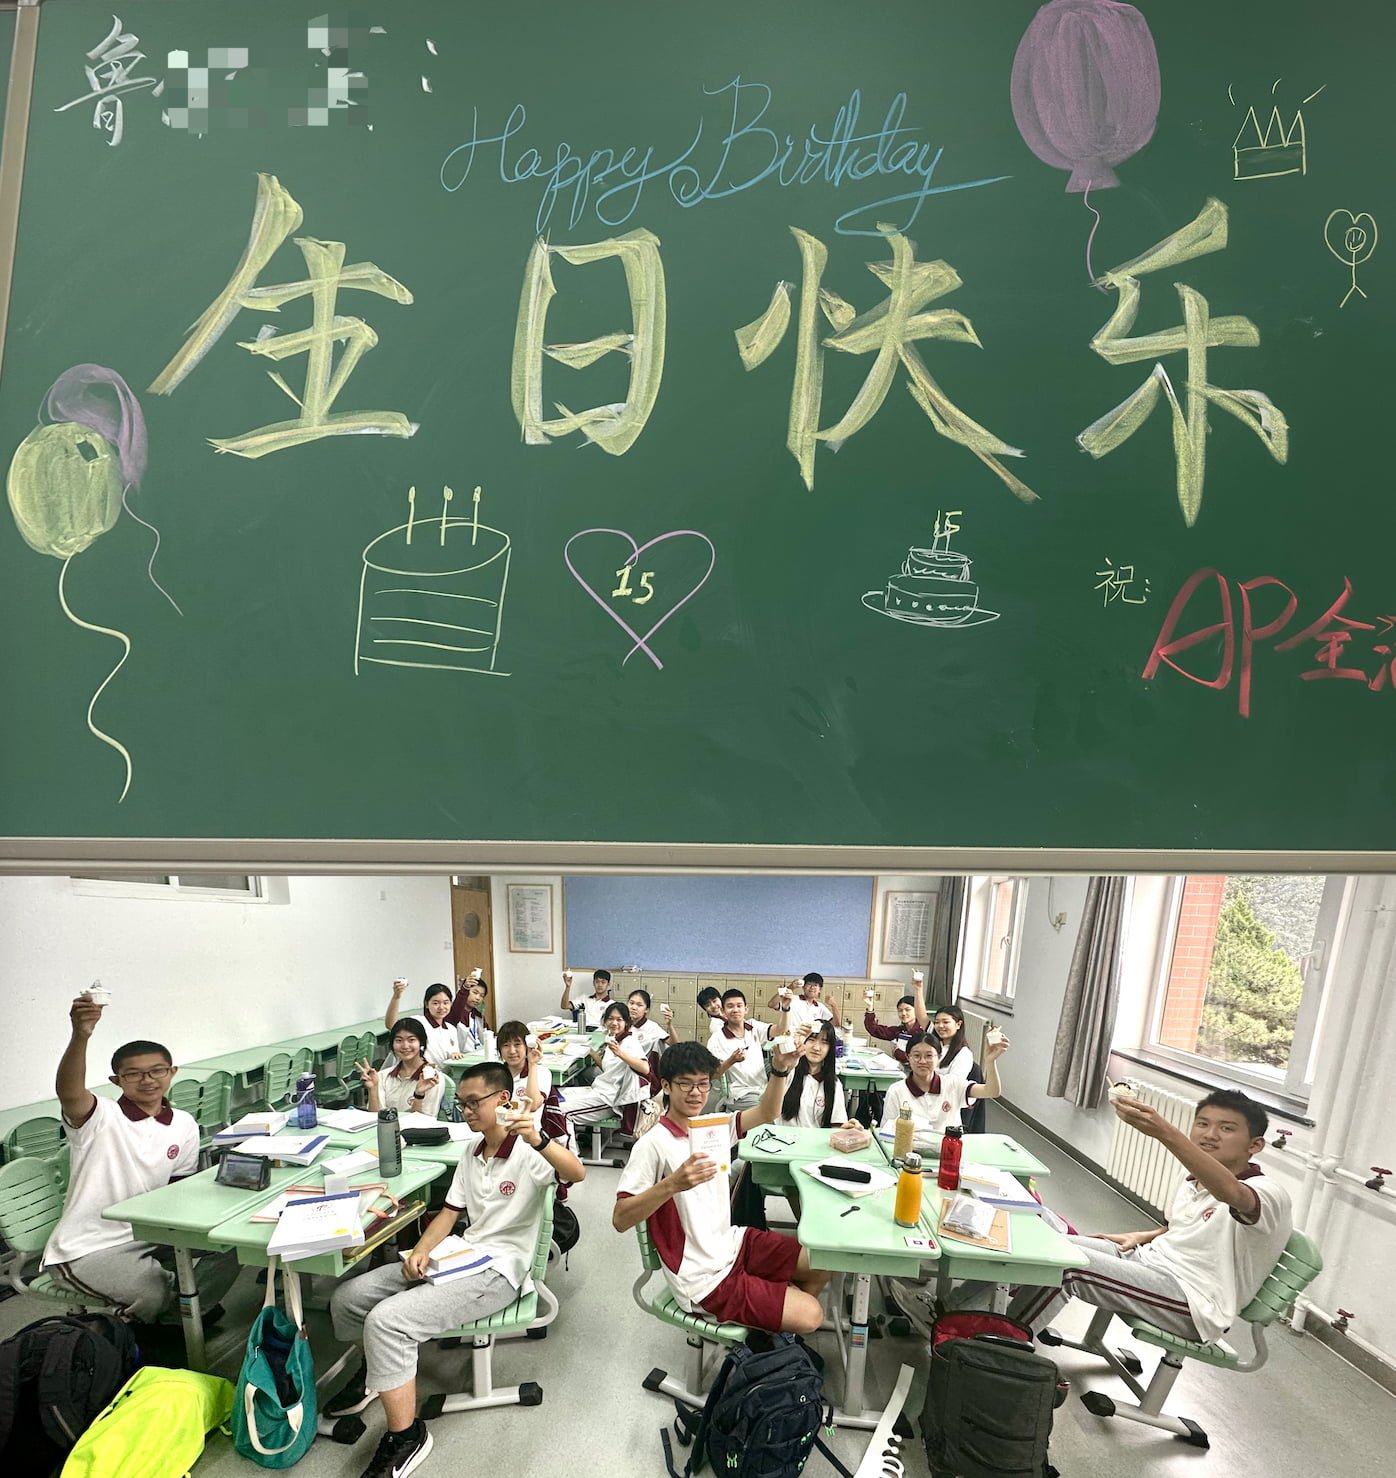 鲁
Happy Birthday
生日快乐
15
15
祝:
AP全